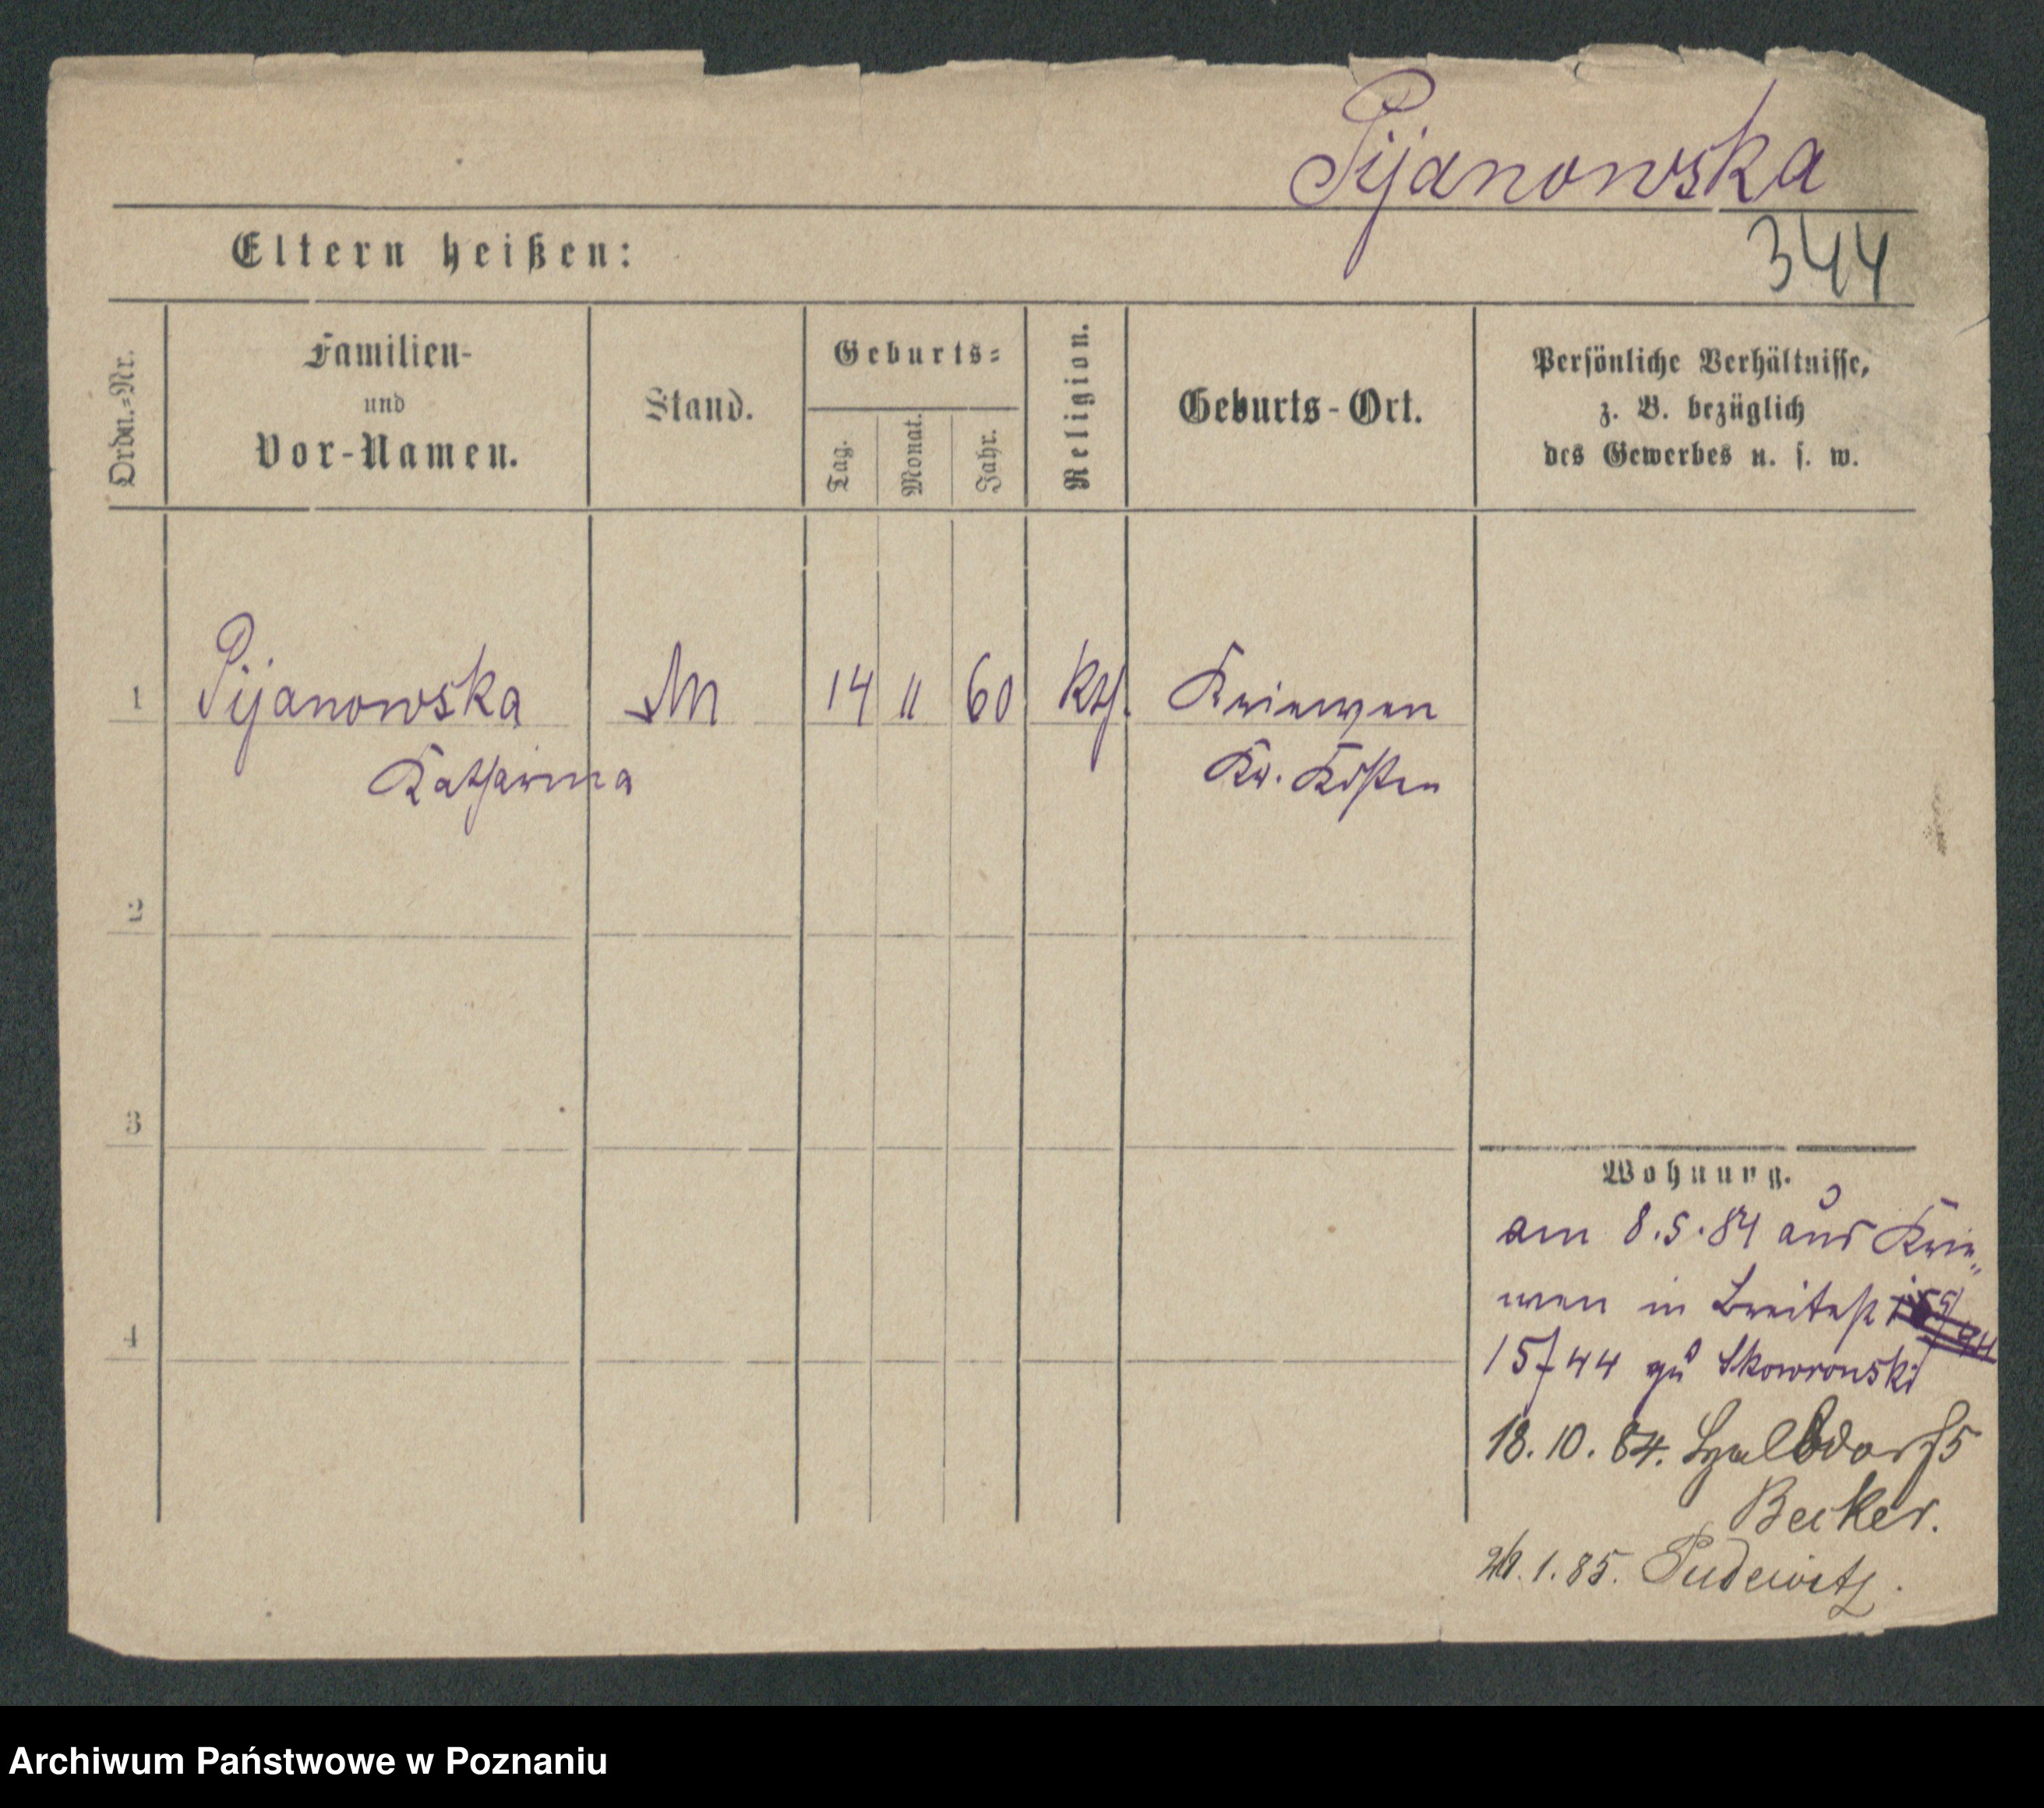 Pijanowska
344
Eltern heißen:
Ordn.=Nr.
Familien-
und
Vor-Namen.
Stand.
Geburts=
Tag.
Monat.
Jahr.
Religion.
Geburts-Ort.
Persönliche Verhältnisse,
z. B. bezüglich
des Gewerbes u. s. w.
1 Pijanowska M 14 11 60 kth. Kriewen
Katharina Kr. Kosten
2
3
4
Wohnung.
am 8.5.84 aus Krie„
wen in Breitestr
15/44 zu Skowronski
18.10.84. 5
Becker.
1.85. Pudewitz.
Archiwum Państwowe w Poznaniu